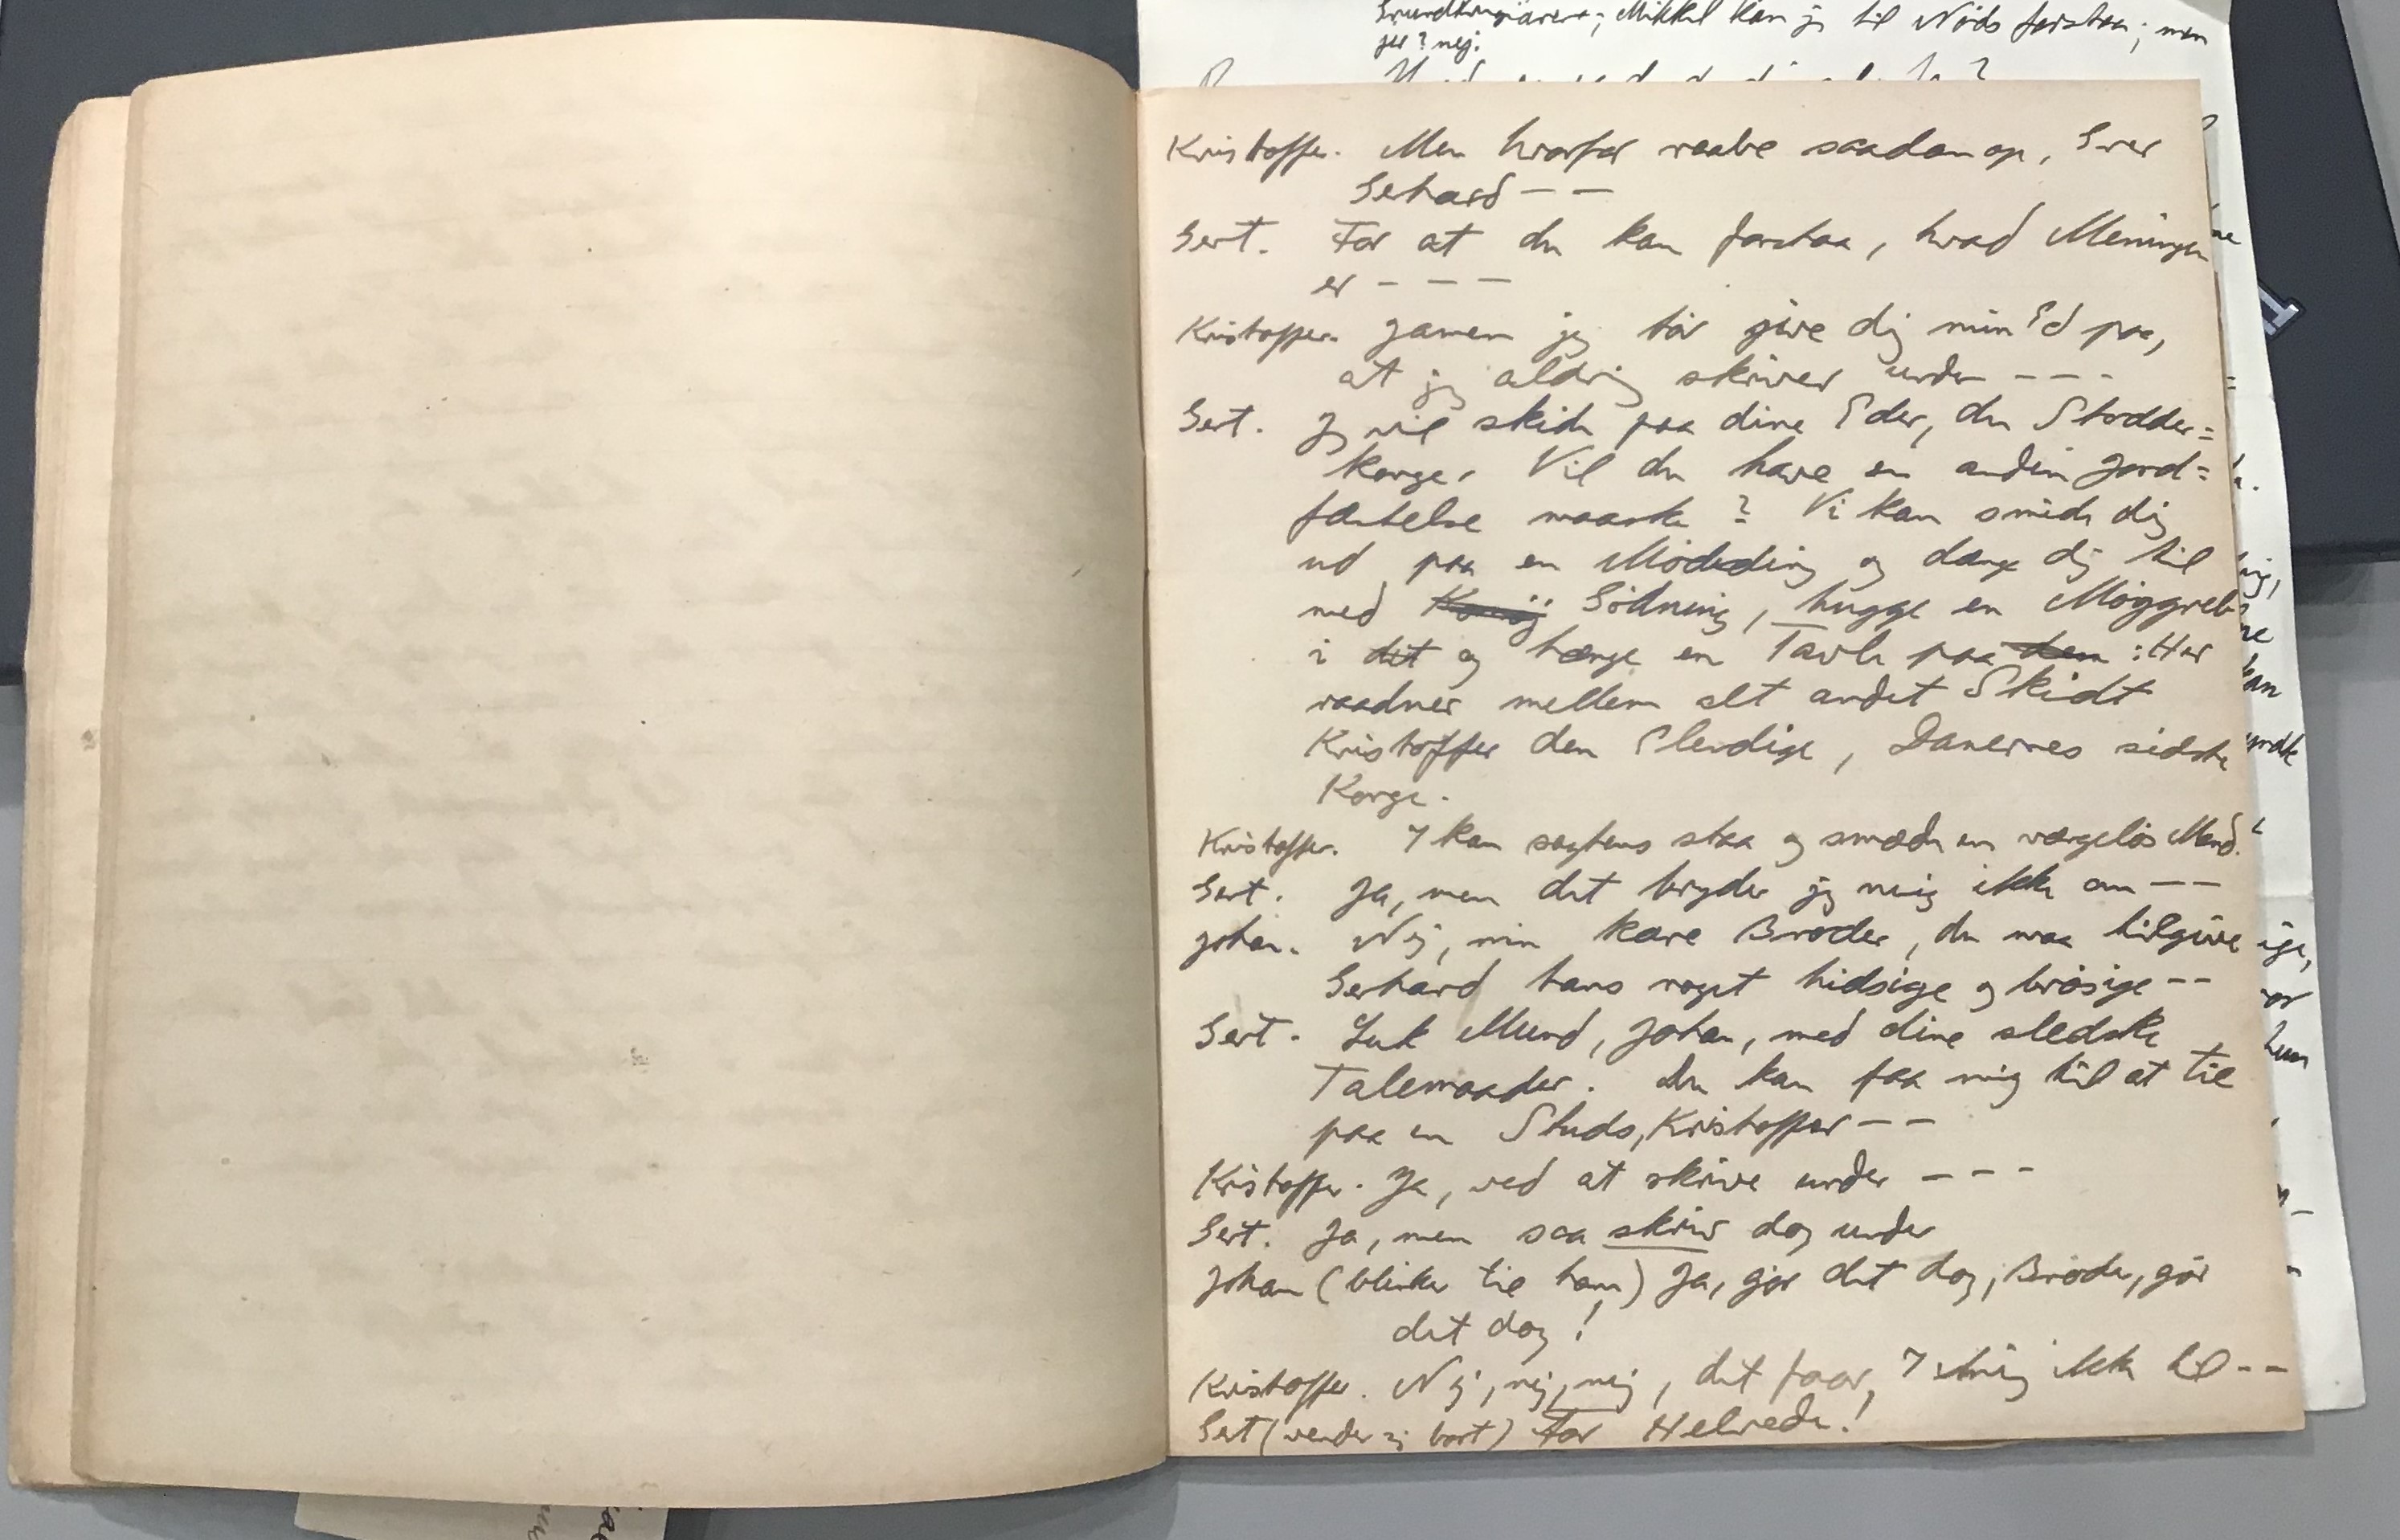 Mikkel kan jeg til Nöds forstaa; men
jer? nej.
Kristoffer. Men hvorfor raabe saadan op, Grev
Gerhard – –
Gert. For at du kan forstaa, hvad Meningen
er – – –
Kristoffer. Jamen jeg tör give dig min Ed paa,
at jeg aldrig skriver under – – –
Gert. Jeg vil skide paa dine Eder, du Stodder=
konge. Vil du have en anden Jord=
fæstelse maaske? Vi kan smide dig
ud paa en Mödding og dænge dig til
med Gödning, hugge en Möggreb
i det og hænge en Tavle paa den : Her
raadner mellem alt andet Skidt
Kristoffer den Elendige, Danernes sidste
Konge.
Kristoffer. I kan sagtens staa og smæde en værgelös Mand.
Gert. Ja, men det bryder jeg mig ikke om – –
Johan. Nej, min kære Broder, du maa tilgive
Gerhard hans noget hidsige og brösige – –
Gert. Luk Mund, Johan, med dine sledske
Talemaader. Du kan faa mig til at tie
paa en Studs, Kristoffer – –
Kristoffer. Ja, ved at skrive under – – –
Gert. Ja, men saa skriv dog under
Johan (blinker til ham) Ja, gör det dog, Broder, gör
det dog!
Kristoffer. Nej, nej, nej, det faar I mig ikke til – –
Gert (vender sig bort) For Helvede!